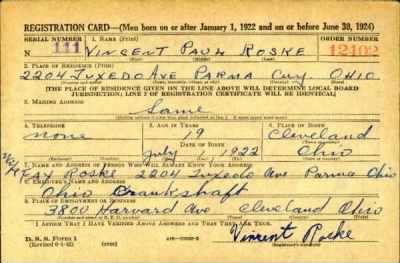 REGISTRATION CARD—(Men born on or after January 1, 1922 and on or before June 30, 1924)
SERIAL NUMBER 1. NAME (Print) ORDER NUMBER
111 VINCENT PAUL ROSKE 12402
2. PLACE OF RESIDENCE (Print)
2204 TUXEDO AVE PARMA CUY. OHIO
[THE PLACE OF RESIDENCE GIVEN ON THE LINE ABOVE WILL DETERMINE LOCAL BOARD
JURISDICTION; LINE 2 OF REGISTRATION CERTIFICATE WILL BE IDENTICAL]
3. MAILING ADDRESS
Same
4. TELEPHONE 5. AGE IN YEARS 6. PLACE OF BIRTH
none 19 Cleveland
DATE OF BIRTH
July 1922 Ohio
7. NAME AND ADDRESS OF PERSON WHO WILL ALWAYS KNOW YOUR ADDRESS
Roske 2204 Tuxedo Ave Parma Ohio
8. EMPLOYER'S NAME AND ADDRESS
Ohio Crankshaft
9. PLACE OF EMPLOYMENT OR BUSINESS
3800 Harvard Ave Cleveland Ohio
I AFFIRM THAT I HAVE VERIFIED ABOVE ANSWERS AND THAT THEY ARE TRUE.
D. S. S. Form 1
(Revised 6-1-42)
Vincent Roske